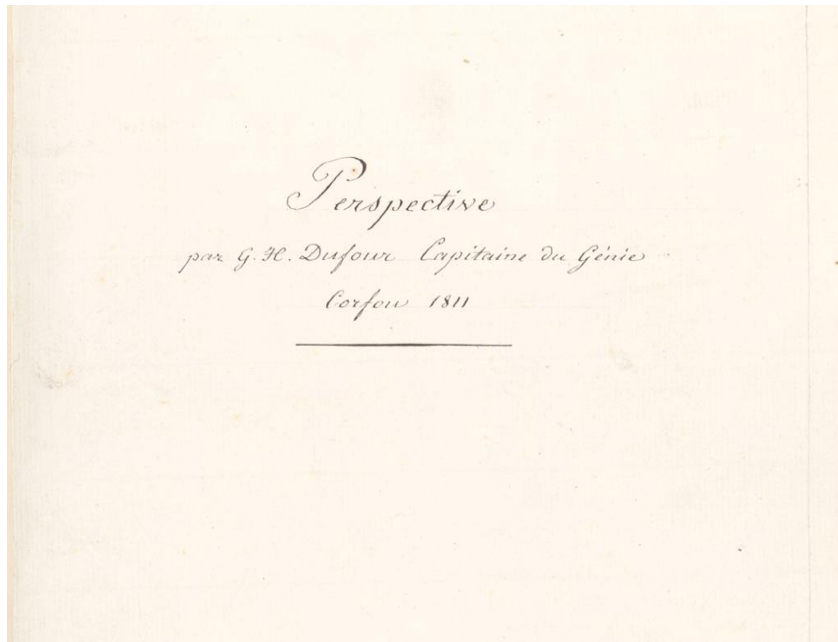 Perspective
par G. H. Dufour Capitaine du Génie
Corfou 1811